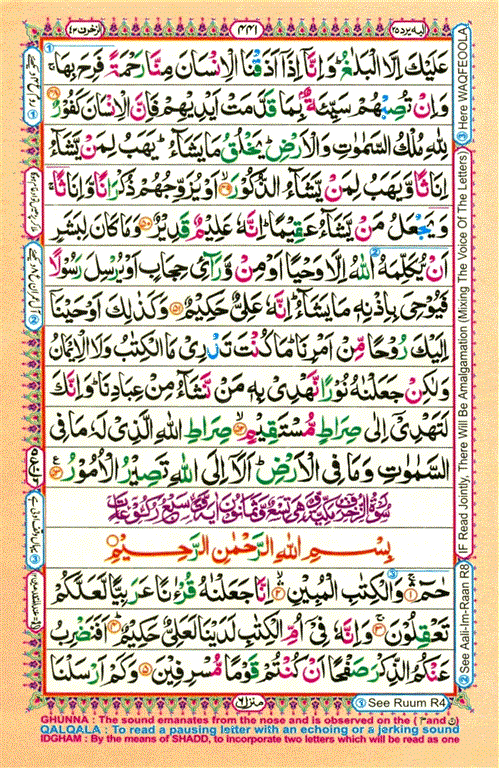 الیه یرد ۲۵
۴۴۱
الزخرف ۴۳
عَلَيْكَ اِلَّا الْبَلٰغُ ؕ وَاِنَّاۤ اِذَاۤ اَذَقْنَا الْاِنْسَانَ مِنَّا رَحْمَةً فَرِحَ بِهَا ۚ
وَاِنْ تُصِبْهُمْ سَيِّئَةٌۢ بِمَا قَدَّمَتْ اَيْدِيْهِمْ فَاِنَّ الْاِنْسَانَ كَفُوْرٌ ﴿۴۸﴾
لِلّٰهِ مُلْكُ السَّمٰوٰتِ وَالْاَرْضِ ؕ يَخْلُقُ مَا يَشَآءُ ؕ يَهَبُ لِمَنْ يَّشَآءُ
اِنَاثًا وَّيَهَبُ لِمَنْ يَّشَآءُ الذُّكُوْرَ ﴿۴۹﴾ اَوْ يُزَوِّجُهُمْ ذُكْرَانًا وَّاِنَاثًا ۚ
وَيَجْعَلُ مَنْ يَّشَآءُ عَقِيْمًا ؕ اِنَّهٗ عَلِيْمٌ قَدِيْرٌ ﴿۵۰﴾ وَمَا كَانَ لِبَشَرٍ
اَنْ يُّكَلِّمَهُ اللّٰهُ اِلَّا وَحْيًا اَوْ مِنْ وَّرَآئِ حِجَابٍ اَوْ يُرْسِلَ رَسُوْلًا
فَيُوْحِيَ بِاِذْنِهٖ مَا يَشَآءُ ؕ اِنَّهٗ عَلِيٌّ حَكِيْمٌ ﴿۵۱﴾ وَكَذٰلِكَ اَوْحَيْنَاۤ
اِلَيْكَ رُوْحًا مِّنْ اَمْرِنَا ؕ مَا كُنْتَ تَدْرِيْ مَا الْكِتٰبُ وَلَا الْاِيْمَانُ
وَلٰكِنْ جَعَلْنٰهُ نُوْرًا نَّهْدِيْ بِهٖ مَنْ نَّشَآءُ مِنْ عِبَادِنَا ؕ وَاِنَّكَ
لَتَهْدِيْۤ اِلٰى صِرَاطٍ مُّسْتَقِيْمٍ ﴿۵۲﴾ صِرَاطِ اللّٰهِ الَّذِيْ لَهٗ مَا فِي
السَّمٰوٰتِ وَمَا فِي الْاَرْضِ ؕ اَلَاۤ اِلَى اللّٰهِ تَصِيْرُ الْاُمُوْرُ ﴿۵۳﴾
سُوْرَةُ الزُّخْرُفِ مَكِّيَّةٌ وَّهِيَ تِسْعٌ وَّثَمَانُوْنَ اٰيَةً وَّسَبْعُ رُكُوْعَاتٍ
بِسْمِ اللّٰهِ الرَّحْمٰنِ الرَّحِيْمِ
حٰمٓ ﴿۱﴾ وَالْكِتٰبِ الْمُبِيْنِ ﴿۲﴾ اِنَّا جَعَلْنٰهُ قُرْءٰنًا عَرَبِيًّا لَّعَلَّكُمْ
تَعْقِلُوْنَ ﴿۳﴾ وَاِنَّهٗ فِيْۤ اُمِّ الْكِتٰبِ لَدَيْنَا لَعَلِيٌّ حَكِيْمٌ ﴿۴﴾ اَفَنَضْرِبُ
عَنْكُمُ الذِّكْرَ صَفْحًا اَنْ كُنْتُمْ قَوْمًا مُّسْرِفِيْنَ ﴿۵﴾ وَكَمْ اَرْسَلْنَا
منزل ۶
③ See Ruum R4
② See Aali-Im-Raan R8 ① (IF Read Jointly, There Will Be Amalgamation (Mixing The Voice Of The Letters) ③ Here WAQFEOOLA
GHUNNA : The sound emanates from the nose and is observed on the ( م and ن )
QALQALA : To read a pausing letter with an echoing or a jerking sound
IDGHAM : By the means of SHADD, to incorporate two letters which will be read as one